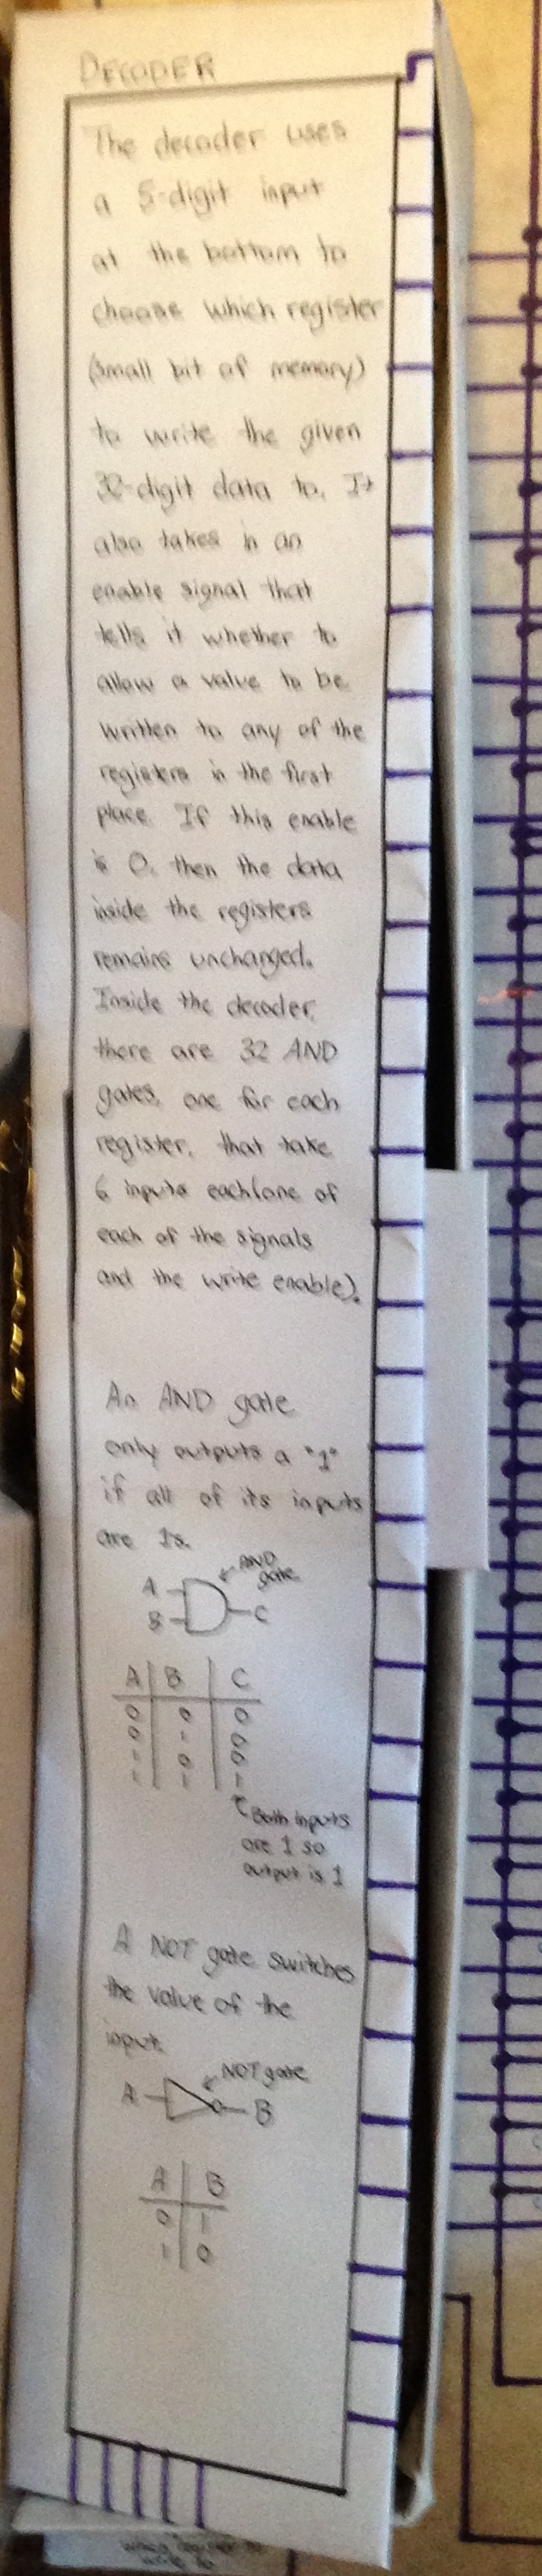 DECODER
The decoder uses
a 5-digit input
at the bottom to
choose which register
(small bit of memory)
to write the given
32-digit data to. It
also takes in an
enable signal that
tells it whether to
allow a value to be
written to any of the
registers in the first
place. If this enable
is 0, then the data
inside the registers
remains unchanged.
Inside the decoder,
there are 32 AND
gates, one for each
register, that take
6 inputs each (one of
each of the signals
and the write enable).
An AND gate
only outputs a "1"
if all of its inputs
are 1s.
AND
gate
A
B
C
A B C
0 0 0
0 1 0
1 0 0
1 1 1
Both inputs
are 1 so
output is 1
A NOT gate switches
the value of the
input.
NOT gate
A B
A B
0 1
1 0
which register to
write to